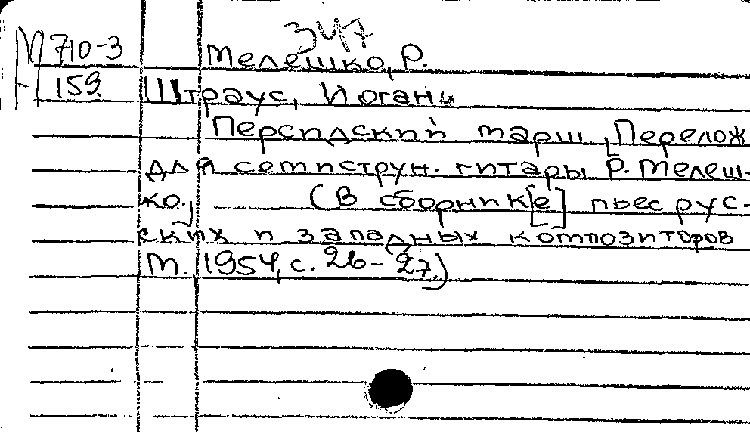 347
М 710-3 Мелешко, Р.
159 Штраус, Иоганн
Персидский марш, [Перелож
для семиструн. гитары Р. Мелеш-
ко.] (В сборник[е] пьес рус-
ских и западных композиторов
М., 1954, с. 26-27.)